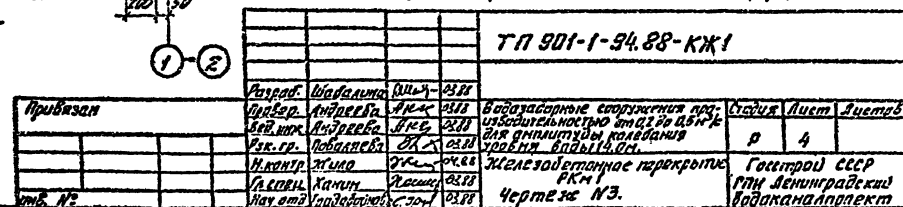 200 50
1 - 2
ТП 901-1-94.88-КЖ1
Привязан
инв. №
Разраб. Шабалина 03.88
Провер. Андреева 03.88
Вед. инж. Андреева 03.88
Рук. гр. 03.88
Н.контр. Жила 04.88
Гл.спец. Ханин 03.88
Нач. отд. 03.88
Водозаборные сооружения про-
изводительностью от 0,2 до 0,6 м³/с
для амплитуды колебания
уровня воды 14.0м.
Стадия Лист Листов
Р 4
Железобетонное перекрытие
РКм1
Чертеж N3.
Госстрой СССР
ГПИ Ленинградский
Водоканалпроект